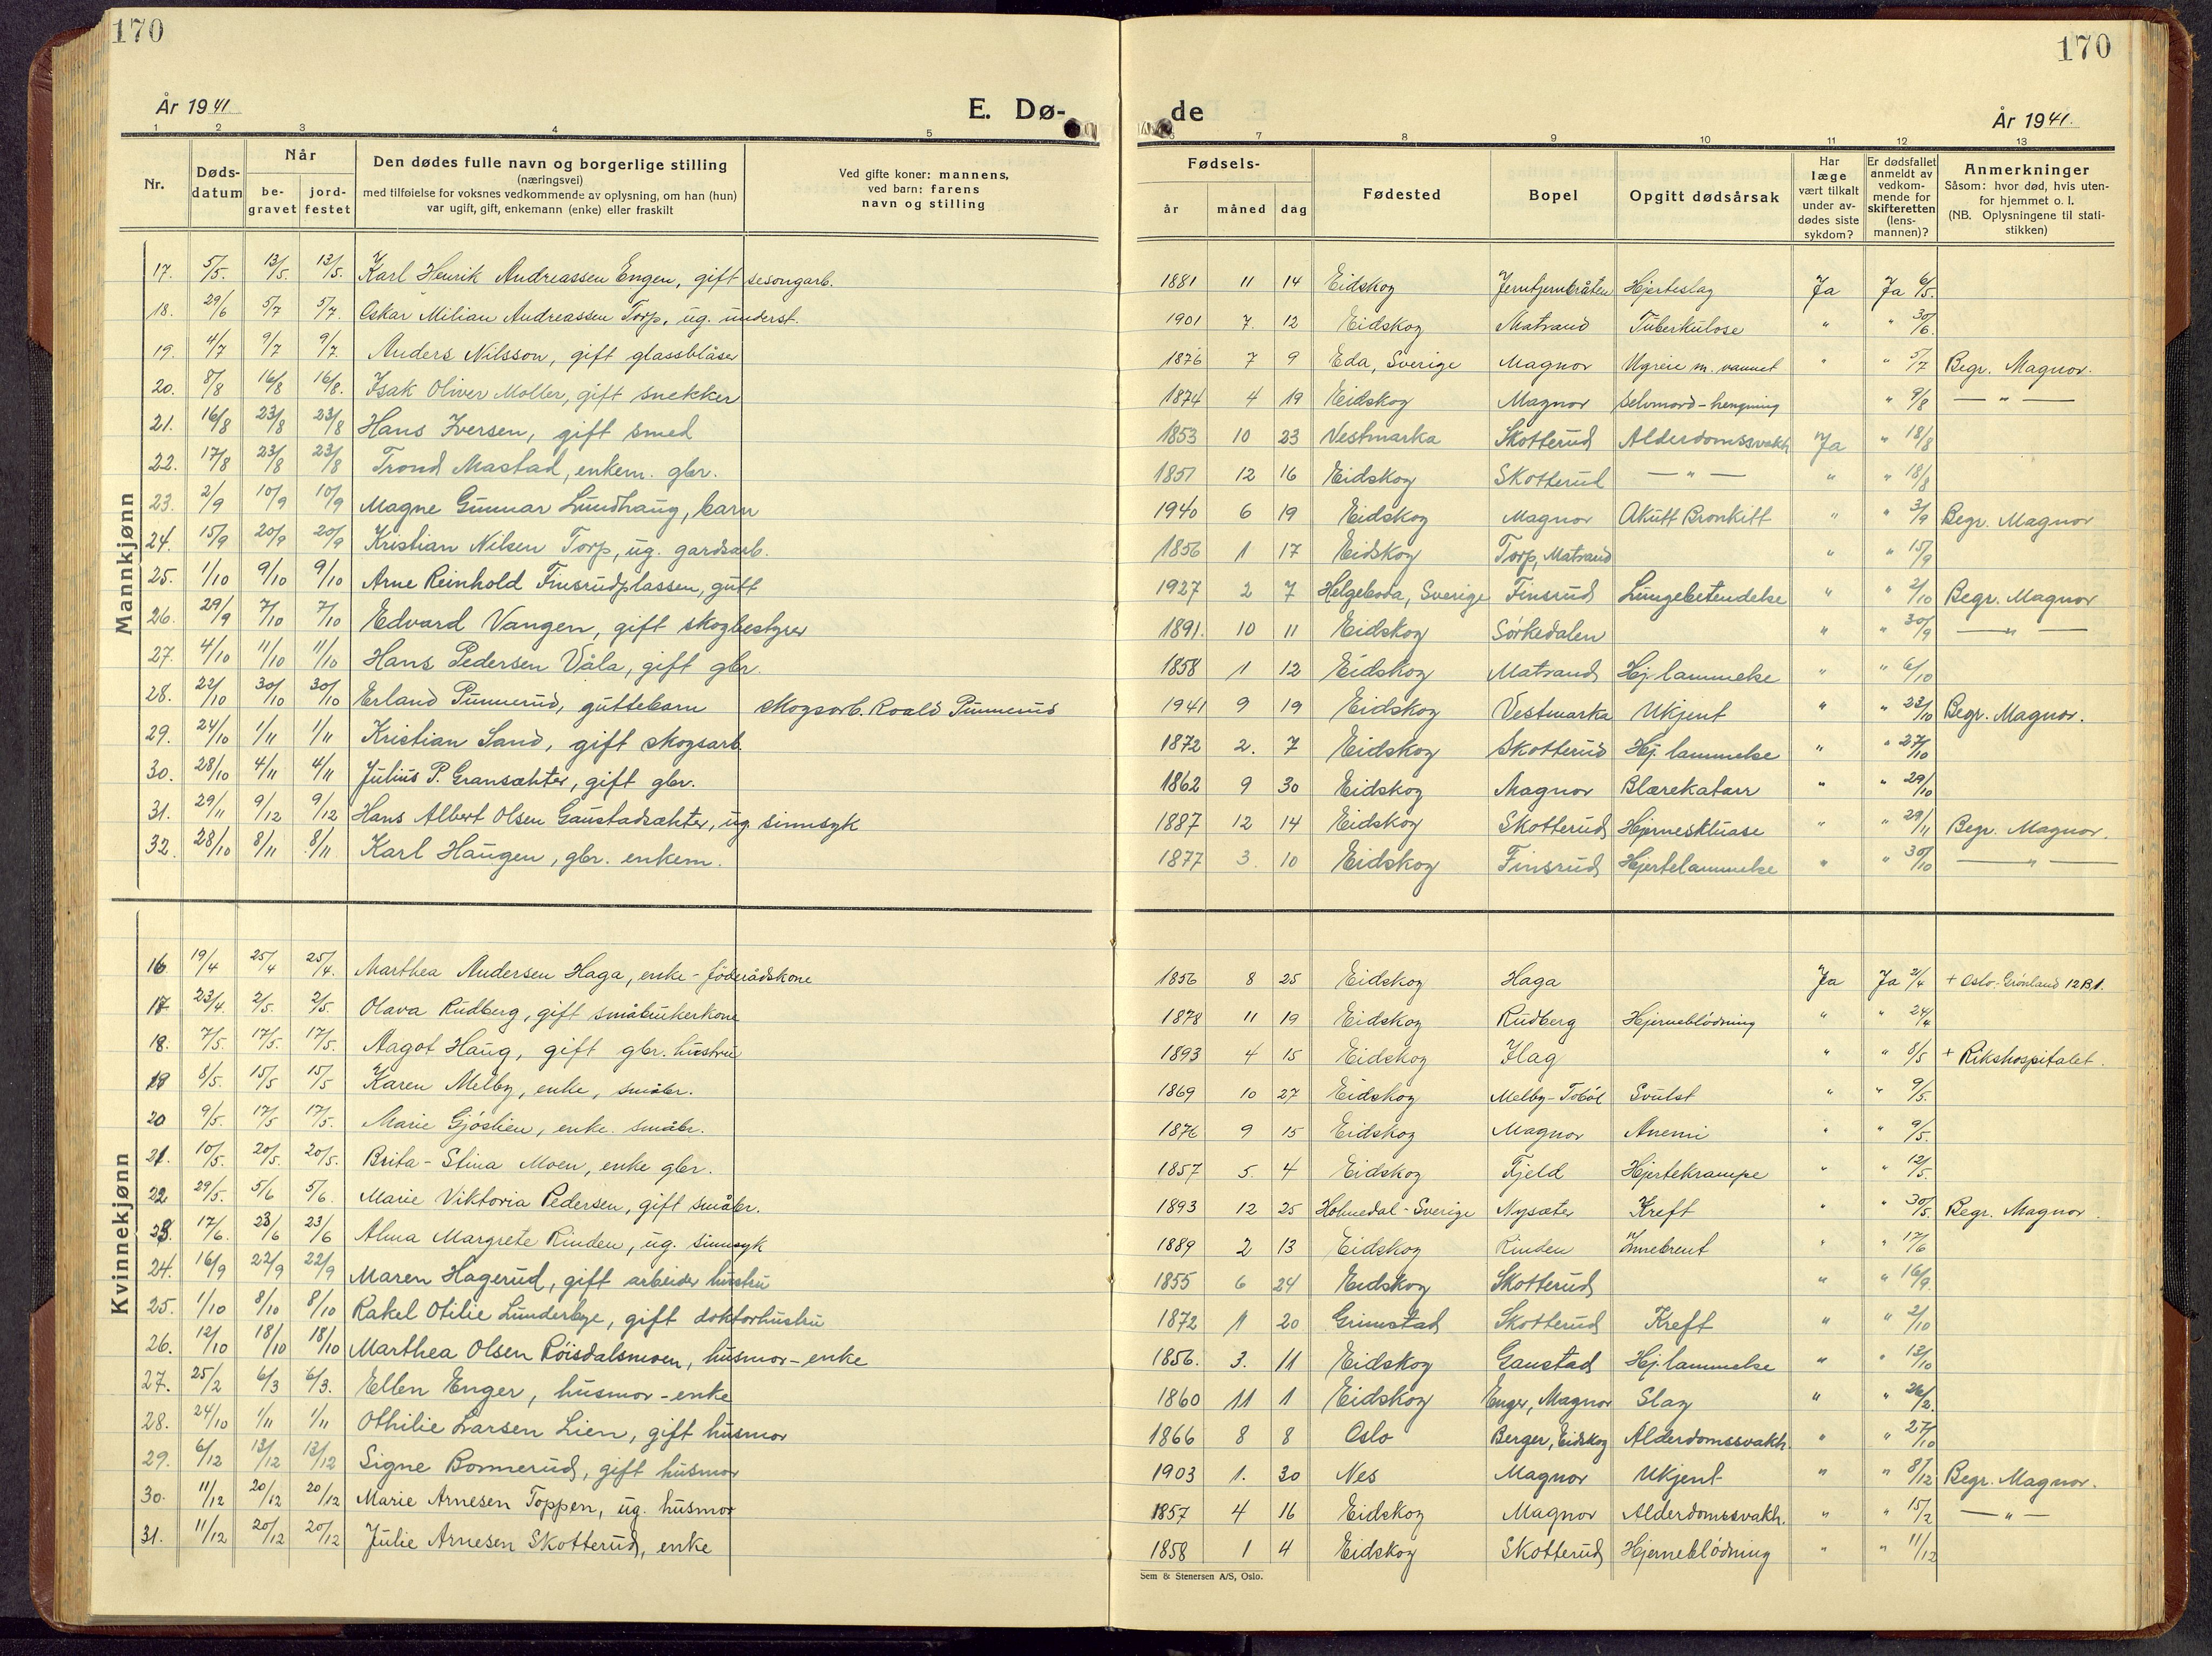 170
170
År 1941
E. Dø-
de
År 1941.
1 2 3 4 5
7 8 9 10 11 12 13
Nr.
Døds-
datum
Når
be-
gravet
jord-
festet
Den dødes fulle navn og borgerlige stilling
(næringsvei)
med tilføielse for voksnes vedkommende av oplysning, om han (hun)
var ugift, gift, enkemann (enke) eller fraskilt
Ved gifte koner: mannens,
ved barn: farens
navn og stilling
Fødsels-
år måned dag
Fødested
Bopel
Opgitt dødsårsak
Har
læge
vært tilkalt
under av-
dødes siste
sykdom?
Er dødsfallet
anmeldt av
vedkom-
mende for
skifteretten
(lens-
mannen)?
Anmerkninger
Såsom: hvor død, hvis uten-
for hjemmet o. l.
(NB. Oplysningene til stati-
stikken)
Mannkjønn
17. 5/5. 13/5. 13/5. Karl Henrik Andreassen Engen, gift sesongarb. 1881 11 14 Eidskog Jerntjernbråten Hjerteslag Ja Ja 6/5.
18. 29/6 5/7 5/7. Oskar Milian Andreassen Torp, ug. underst. 1901 7. 12 Eidskog Matrand Tuberkulose " " 30/6.
19. 4/7 9/7 9/7. Anders Nilsson, gift glassblåser 1876 7 9 Eda, Sverige Magnor Ugreie m. vannet " " 5/7 Begr. Magnor.
20. 8/8 16/8 16/8. Isak Oliver Moller, gift snekker 1874 4 19 Eidskog Magnor Selvmord-hengning " 9/8 — " —
21. 16/8 23/8 23/8 Hans Iversen, gift smed 1853 10 23 Vestmarka Skotterud Alderdomssvakh. Ja " 18/8
22. 17/8 23/8 23/8 Trond Mastad, enkem. gbr. 1851 12 16 Eidskog Skotterud — " — " " 18/8
23. 2/9 10/9 10/9 Magne Gunnar Lundhaug, barn 1940 6 19 Eidskog Magnor Akutt Bronkitt " " 3/9 Begr. Magnor
24. 15/9 20/9 20/9 Kristian Nilsen Torp, ug. gardsarb. 1856 1 17 Eidskog Torp, Matrand " " 15/9
25. 1/10 9/10 9/10 Arne Reinhold Finsrudplassen, gutt 1927 2 7 Helgeboda, Sverige Finsrud Lungebetendelse " " 2/10 Begr. Magnor
26. 29/9 7/10 7/10 Edvard Vangen, gift skogbestyrer 1891. 10 11 Eidskog Sørkedalen " " 30/9 — " —
27. 4/10 11/10 11/10 Hans Pedersen Våla, gift gbr. 1858 1 12 Eidskog Matrand Hj. lammelse " " 6/10
28. 22/10 30/10 30/10 Erland Punnerud, guttebarn Skogsarb. Roald Punnerud 1941 9 19 Eidskog Vestmarka Ukjent " " 23/10 Begr. Magnor.
29. 24/10 1/11 1/11 Kristian Sand, gift skogsarb. 1872 2. 7 Eidskog Skotterud Hj. lammelse " " 27/10
30. 28/10 4/11 4/11 Julius P. Gransæhter, gift gbr. 1862 9 30 Eidskog Magnor Blærekatarr " " 29/10
31. 29/11 9/12 9/12 Hans Albert Olsen Gaustadsæhter, ug. sinnsyk 1887 12 14 Eidskog Skotterud Hjernesktuase " " 29/11 Begr. Magnor.
32. 28/10 8/11 8/11 Karl Haugen, gbr. enkem. 1877 3. 10 Eidskog Finsrud Hjertelammelse " " 30/10 — " —
Kvinnekjønn
16 19/4 25/4 25/4. Marthea Andersen Haga, enke - föderådskone 1856 8 25 Eidskog Haga Ja Ja 2/4 + Oslo. Grønland 12 B1.
17 23/4. 2/5. 2/5. Olava Rudberg, gift småbrukerkone 1878 11 19 Eidskog Rudberg Hjerneblödning " " 24/4
18. 7/5. 17/5. 17/5. Aagot Haug, gift gbr. hustru 1893 4 15 Eidskog Flag " " 8/5 + Rikshospitalet.
19 8/5. 15/5 15/5 Karen Melby, enke, småbr. 1869 10 27 Eidskog Melby-Tobøl Svulst " " 9/5.
20 9/5. 17/5 17/5. Marie Gjöslien, enke. småbr. 1876 9 15 Eidskog Magnor Anemi " " 9/5.
21. 10/5. 20/5. 20/5. Brita-Stina Moen, enke gbr. 1857 5. 4 Eidskog Fjeld Hjertekrampe " " 12/5.
22 29/5. 5/6 5/6. Marie Viktoria Pedersen, gift småbr. 1893 12 25 Holmedal-Sverige Nysæter Kreft " " 30/5. Begr. Magnor.
23. 17/6. 23/6 23/6 Alma Margrete Rinden, ug. sinnsyk 1889 2 13 Eidskog Rinden Innebrent " " 17/6
24. 16/9 22/9 22/9 Maren Hagerud, gift arbeider hustru 1855 6 24 Eidskog Skotterud " " 16/9.
25. 1/10 8/10 8/10 Rakel Otilie Lunderbye, gift doktorhustru 1872 1 20 Grimstad Skotterud Kreft " " 2/10
26. 12/10 18/10 18/10 Marthea Olsen Röisdalsmoen, husmor-enke 1856. 3. 11 Eidskog Gaustad Hj. lammelse " " 12/10
27. 25/2 6/3 6/3. Ellen Enger, husmor-enke 1860 11 1 Eidskog Enger, Magnor Slag " " 26/2.
28. 24/10 1/11 1/11 Othilie Larsen Lien, gift husmor 1866 8 8 Oslo Berger, Eidskog Alderdomssvakh. " " 27/10
29. 6/12 13/12 13/12 Signe Bonnerud, gift husmor 1903 1. 30 Nes Magnor Ukjent " " 8/12 Begr. Magnor.
30. 11/12 20/12 20/12 Marie Arnesen Toppen, ug. husmor 1857 4 16 Eidskog Magnor Alderdomssvakh. " " 15/2 — " —
31. 11/12 20/12 20/12 Julie Arnesen Skotterud, enke 1858 1 4 Eidskog Skotterud Hjerneblödning " " 11/12
Sem & Stenersen A/S, Oslo.